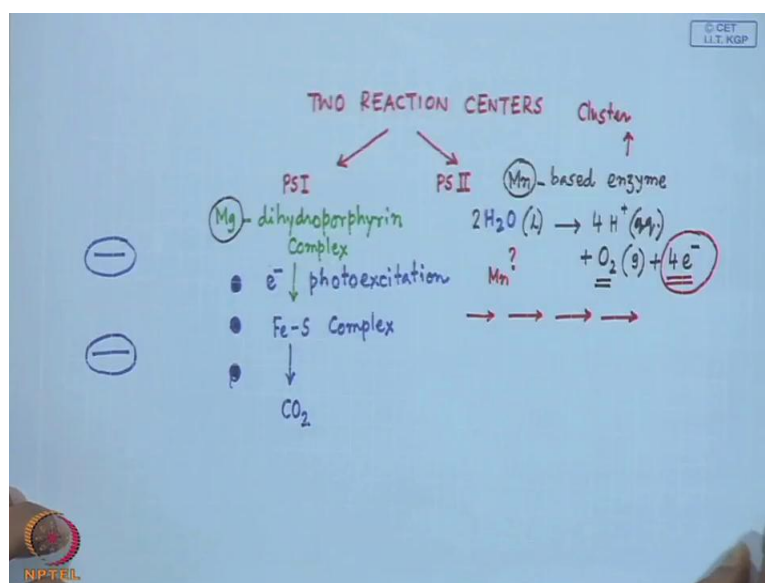 © CET
I.I.T. KGP
TWO REACTION CENTERS
Cluster
PSI
PSII
Mn-based enzyme
Mg-dihydroporphyrin
Complex
2H₂O (l) → 4H⁺ (aq.)
+ O₂ (g) + 4e⁻
e⁻ ↓ photoexcitation
Mn?
Fe-S Complex
→ → → →
CO₂
NPTEL